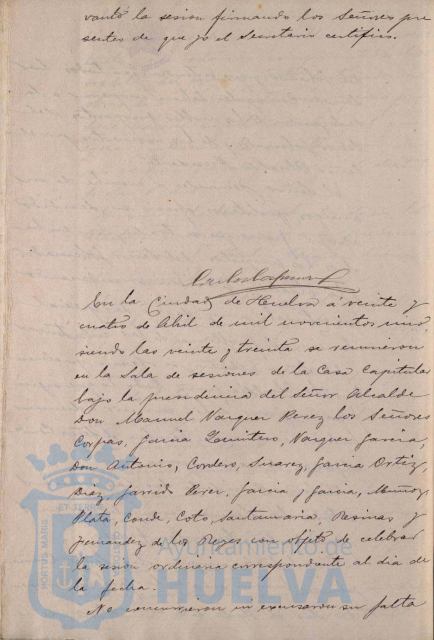 vantó la sesion firmando los Señores pre
sentes de que yo el Secretario certifico.
En la Ciudad de Huelva á veinte y
cuatro de Abril de mil novecientos uno
siendo las veinte y treinta se reunieron
en la Sala de sesiones de la Casa Capitular
bajo la presidencia del Señor Alcalde
Don Manuel Vazquez Perez los Señores
Corpas, Garcia Quintero, Vazquez Garcia,
Don Antonio, Cordero, Suarez, Garcia Ortiz,
Diaz, Garrido Perez, Garcia y Garcia, Muñoz,
Plata, Conde, Coto, Santamaria, Resinas y
Fernandez de los Reyes con objeto de celebrar
la sesion ordinaria correspondiente al dia de
la fecha.
No concurrieron ni excusaron su falta
PORTUS MARIS
ET TERRE
Ayuntamiento de
HUELVA